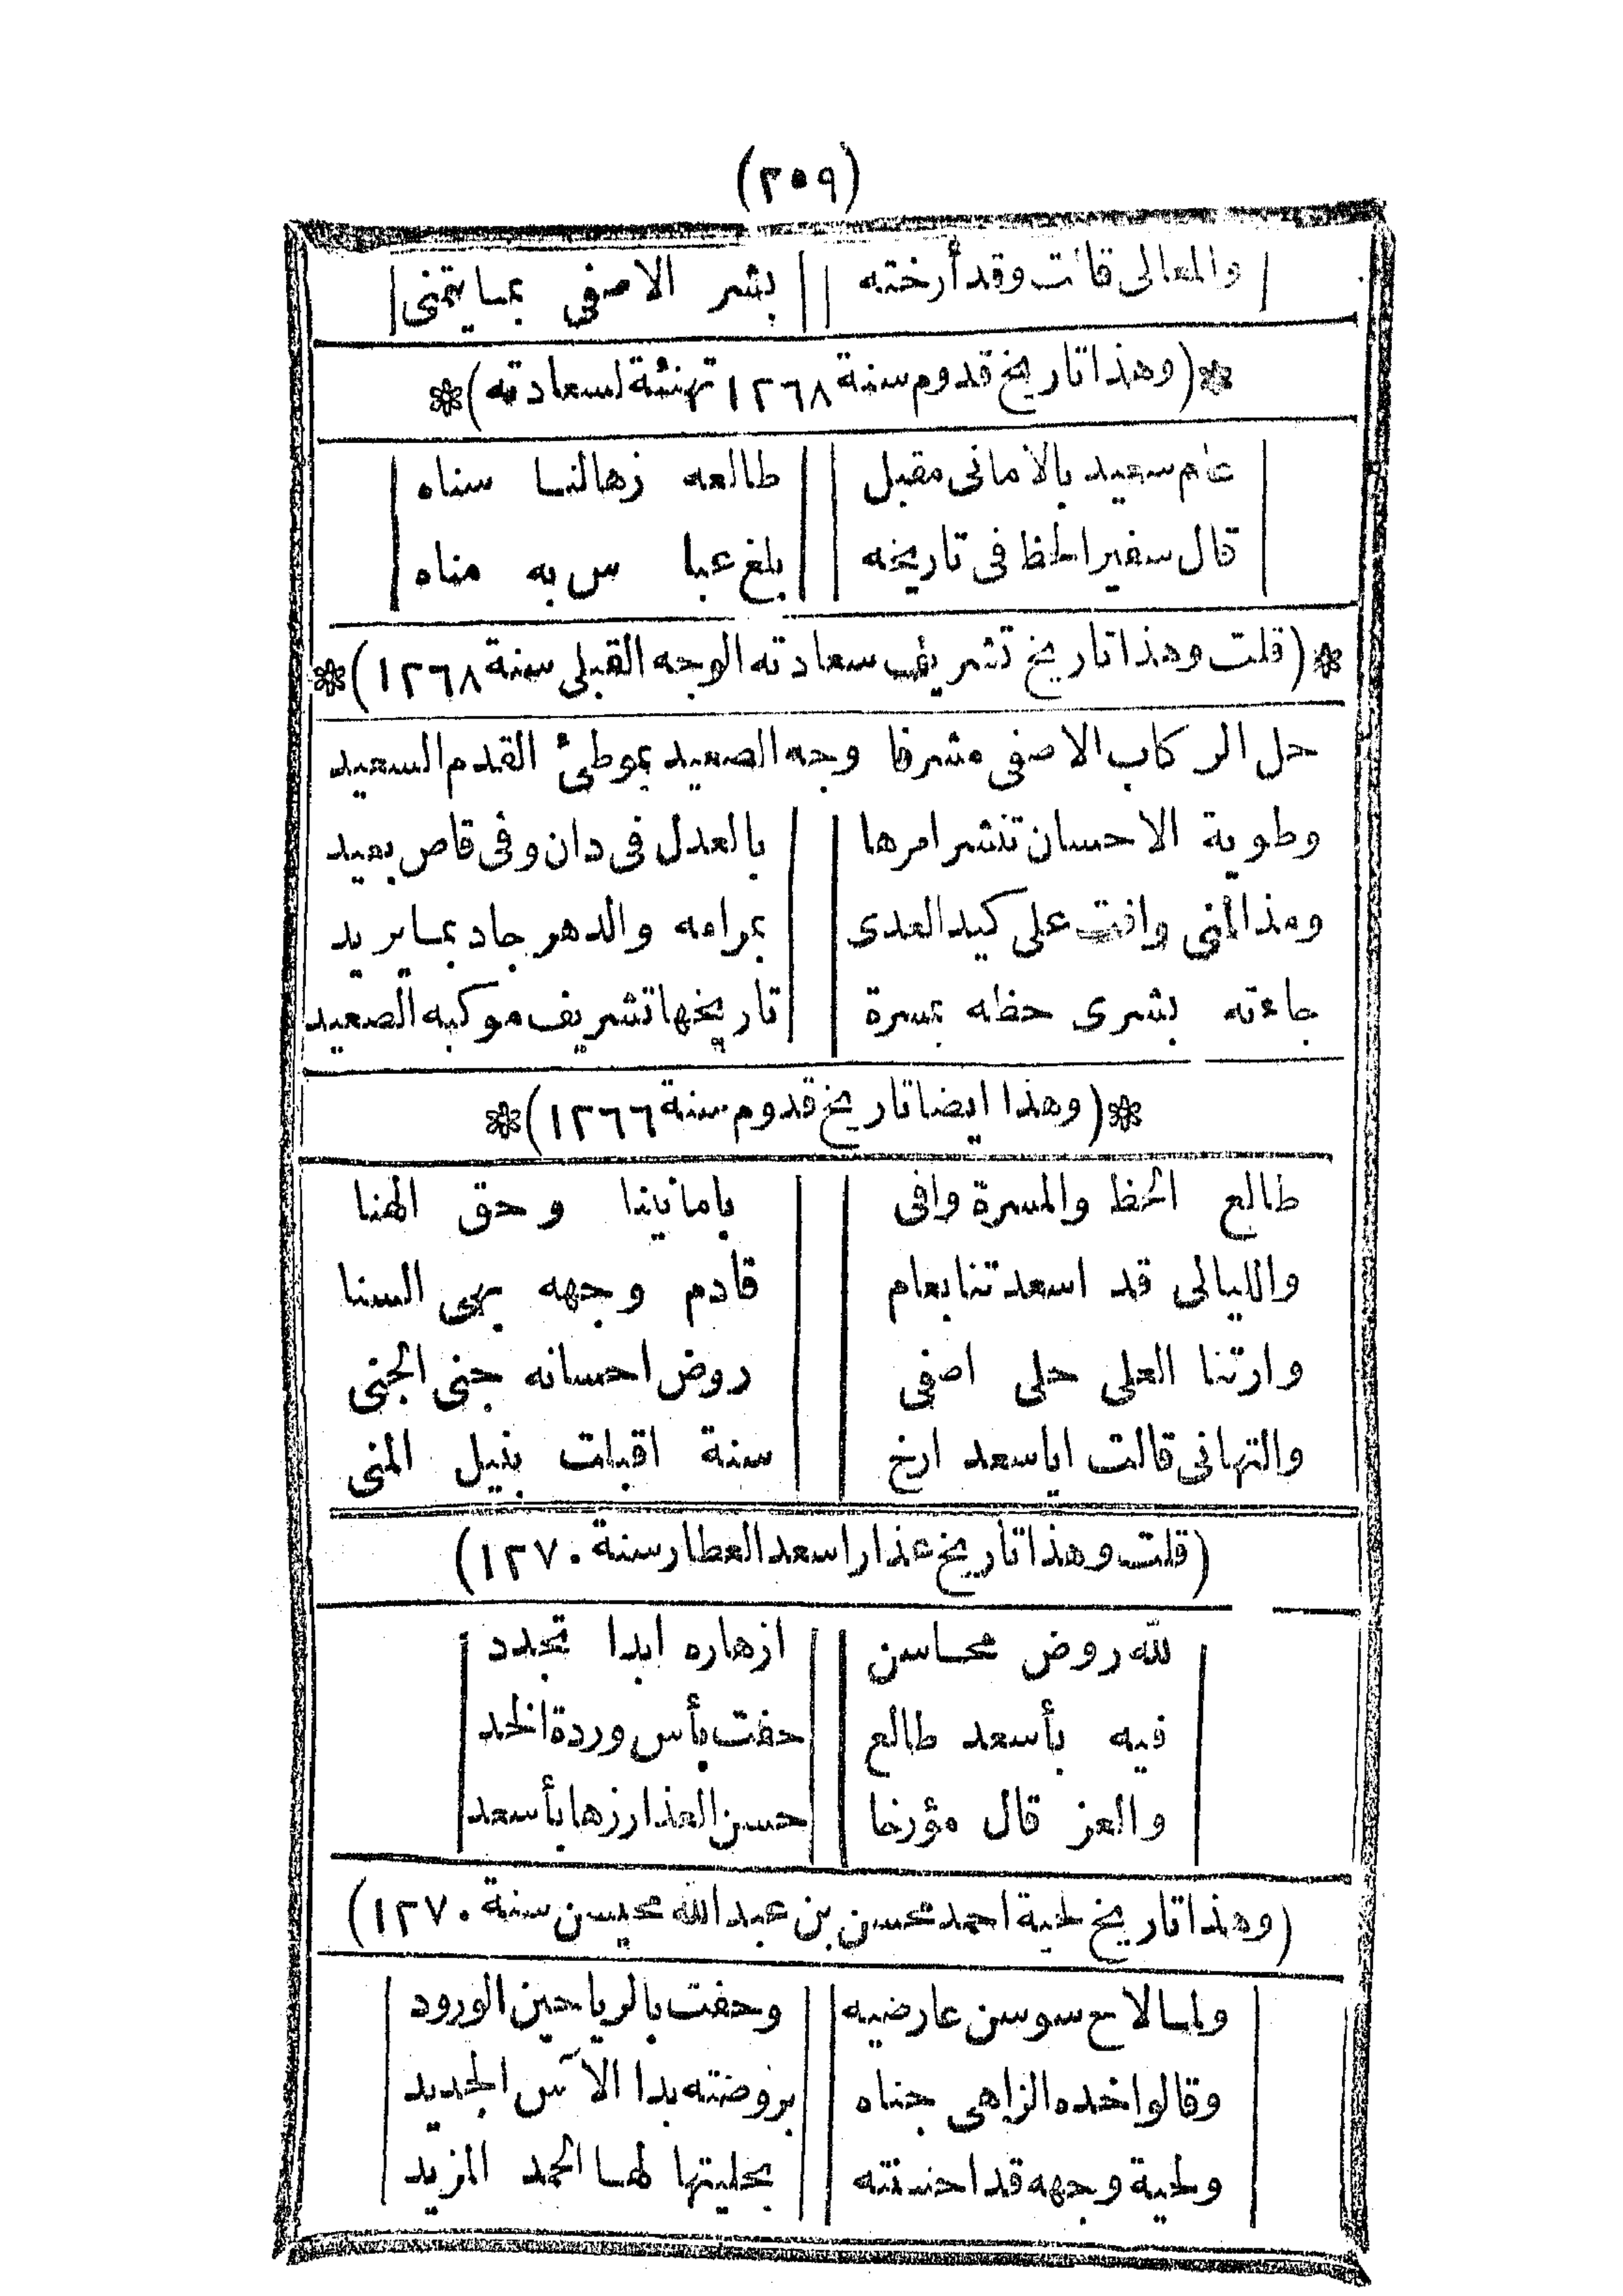 (٢٥٩)
والمعالى قالت وقد أرخته بشر الاصفى بما يتمنى
*(وهذا تاريخ قدوم سنة ١٢٦٨ تهنئة لسعادته)*
عام سعيد بالامانى مقبل طالعه زها لنا سناه
قال سفير الحظ فى تاريخه بلغ عباس به مناه
*(قلت وهذا تاريخ تشريف سعادته الوجه القبلى سنة ١٢٦٨)*
حل الركاب الاصفى مشرفا وجه الصعيد بموطئ القدم السعيد
وطوية الاحسان تنشر امرها بالعدل فى دان وفى قاص بعيد
ومذ المنى وافت على كيد العدى بمرامه والدهر جاد بما يريد
جاءته بشرى حظه بمسرة تاريخها تشريف موكبه الصعيد
*(وهذا ايضا تاريخ قدوم سنة ١٢٦٦)*
طالع الحظ والمسرة وافى بامانينا وحق الهنا
والليالى قد اسعدتنا بعام قادم وجهه بهى السنا
وارتنا العلى حلى اصفى روض احسانه جنى الجنى
والتهانى قالت ايا سعد ارخ سنة اقبلت بنيل المنى
(قلت وهذا تاريخ عذار اسعد العطار سنة ١٢٧٠)
لله روض محاسن ازهاره ابدا تجدد
فيه بأسعد طالع حفت بأس وردة الخد
والعز قال مؤرخا حسن العذار زها بأسعد
(وهذا تاريخ لحية احمد محسن بن عبد الله محيسن سنة ١٢٧٠)
ولما لاح سوسن عارضيه وحفت بالرياحين الورود
وقالوا خده الزاهى جناه بروضته بدا الآس الجديد
ولحية وجهه قد احسنته بحليتها لها الحمد المزيد